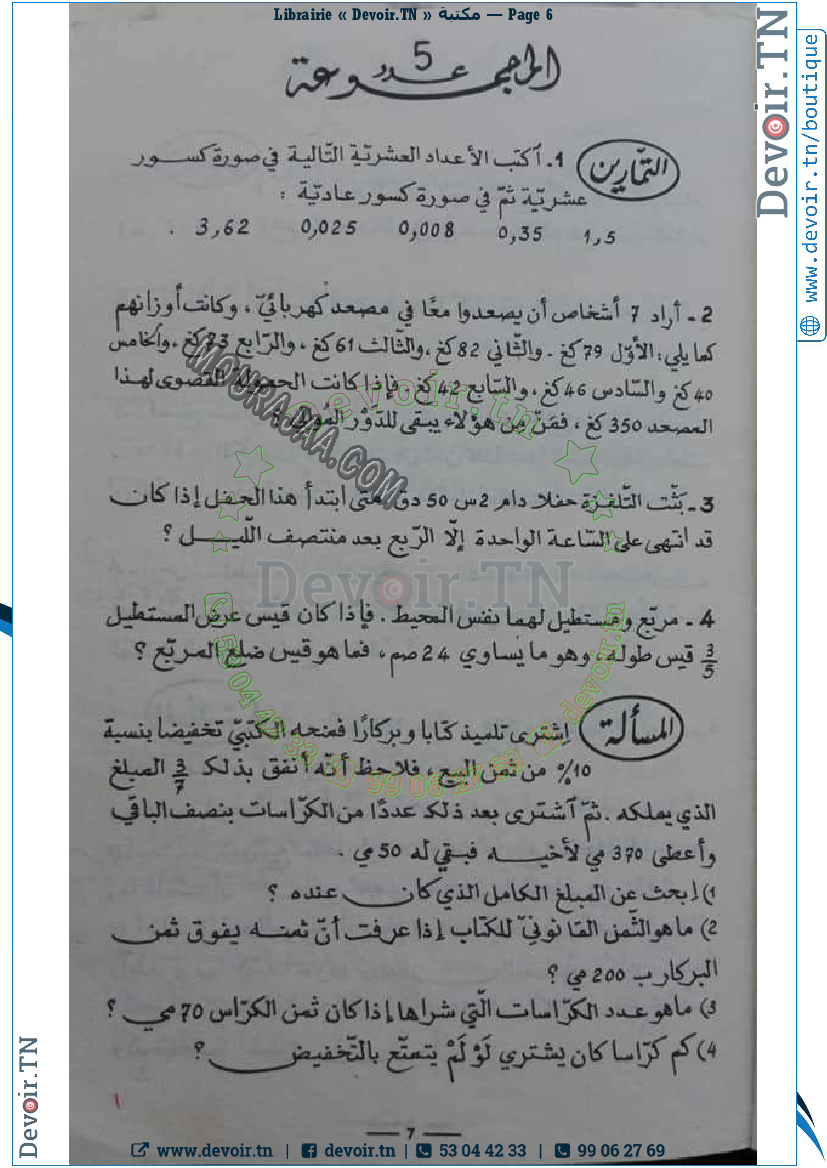 Librairie « Devoir.TN » مكتبة — Page 6
المجموعة عدد 5
التمارين
1. آكتب الأعداد العشريّة التّالية في صورة كسور
عشريّة ثمّ في صورة كسور عاديّة :
1,5 0,35 0,008 0,025 3,62 .
2 - أراد 7 أشخاص أن يصعدوا معًا في مصعد كهربائيّ ، وكانت أوزانهم
كما يلي : الأوّل 79 كغ . والثّاني 82 كغ ، والثّالث 61 كغ ، والرّابع 73 كغ . والخامس
40 كغ والسّادس 46 كغ ، والسّابع 42 كغ . فإذا كانت الحمولة القصوى لهذا
المصعد 350 كغ ، فمَنْ مِن هؤلاء يبقى للدّوْر المُوالي ؟
3 - بَثّت التّلفزة حفلا دام 2س 50 دق . متى ابتدأ هذا الحفل إذا كان
قد انتهى على السّاعة الواحدة إلّا الرّبع بعد منتصف اللّيل ؟
4 - مربّع ومستطيل لهما نفس المحيط . فإذا كان قيس عرض المستطيل
3/5 قيس طوله ، وهو ما يساوي 24 صم ، فما هو قيس ضلع المربّع ؟
المسألة
إشترى تلميذ كتابا وبركارًا فمنحه الكتبيّ تخفيضا بنسبة
10% من ثمن البيع ، فلاحظ أنّه أنفق بذلك 3/7 المبلغ
الذي يملكه . ثمّ آشترى بعد ذلك عددًا من الكرّاسات بنصف الباقي
وأعطى 370 مي لأخيه فبقي له 50 مي .
1) إبحث عن المبلغ الكامل الذي كان عنده ؟
2) ما هو الثّمن القانونيّ للكتاب إذا عرفت أنّ ثمنه يفوق ثمن
البركار ب 200 مي ؟
3) ما هو عدد الكرّاسات الّتي شراها إذا كان ثمن الكرّاس 70 مي ؟
4) كم كرّاسا كان يشتري لَوْ لَمْ يتمتّع بالتّخفيض ؟
7
www.devoir.tn | devoir.tn | 53 04 42 33 | 99 06 27 69
Devoir.TN
www.devoir.tn/boutique
Devoir.TN
Devoir.TN
MOURADAA.COM
devoir.tn
53 04 42 33
99 06 27 69
devoir.tn